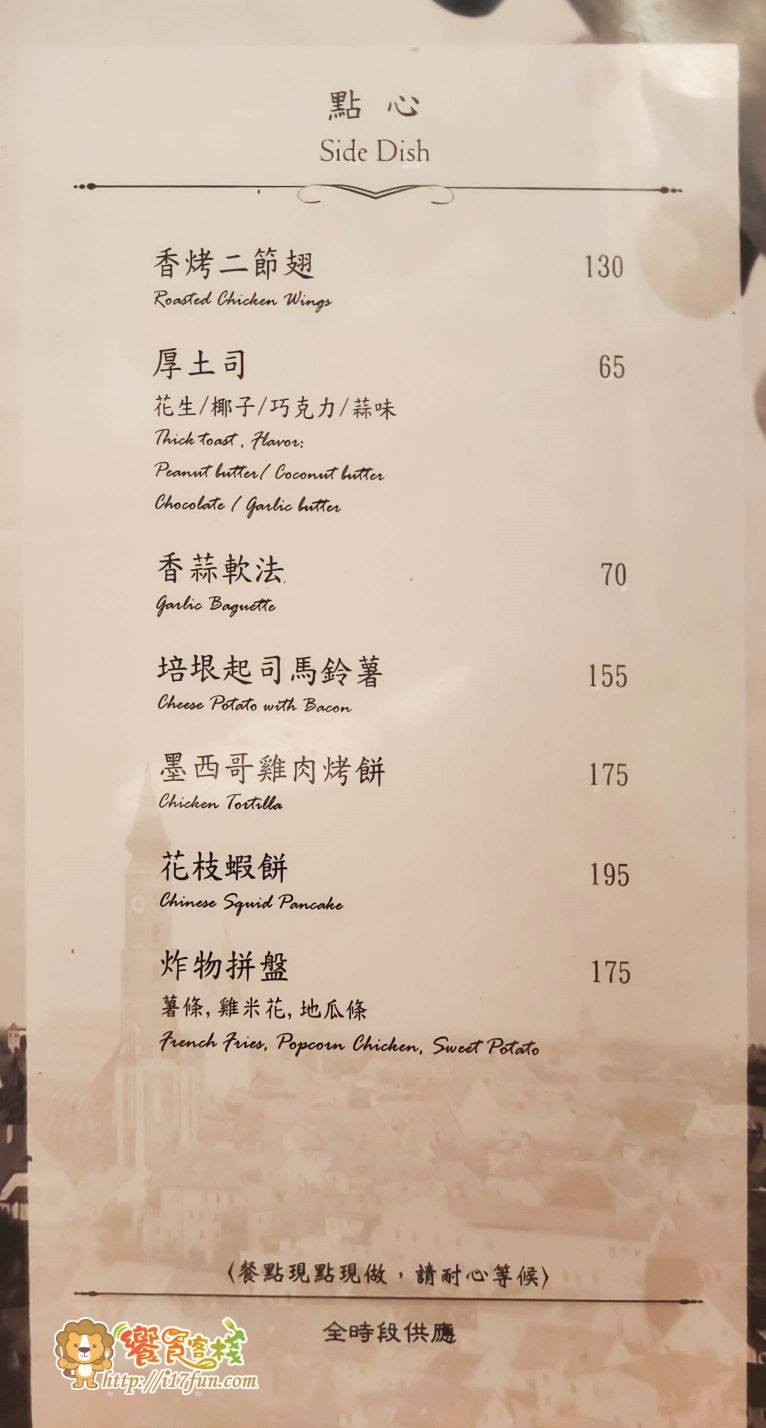 點 心
Side Dish
香烤二節翅 130
Roasted Chicken Wings
厚土司 65
花生/椰子/巧克力/蒜味
Thick toast , Flavor:
Peanut butter/ Coconut butter
Chocolate / Garlic butter
香蒜軟法 70
Garlic Baguette
培垠起司馬鈴薯 155
Cheese Potato with Bacon
墨西哥雞肉烤餅 175
Chicken Tortilla
花枝蝦餅 195
Chinese Squid Pancake
炸物拼盤 175
薯條, 雞米花, 地瓜條
French Fries, Popcorn Chicken, Sweet Potato
〈餐點現點現做，請耐心等候〉
全時段供應
饗食客棧
http://i17fun.com